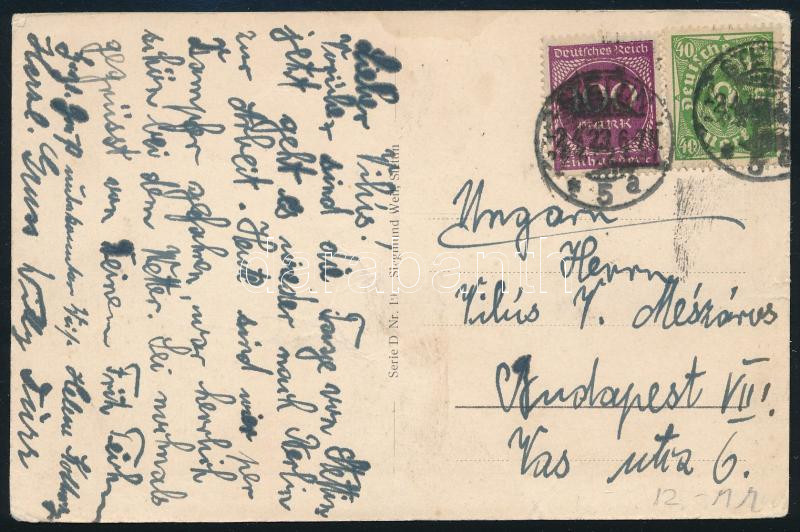 Lieber Vilús!
Vorüber sind die Tage von Stettin
jetzt geht es wieder nach Berlin
zur Arbeit. Heute sind wir per
Dampfer gefahren, war herrlich
schön bei dem Wetter. Sei nochmals
gegrüsst von Deinem Fritz
unbekannter
Herzl. Gruss Willy
Serie D. Nr. Siegmund Weil, Stettin
Deutsches Reich
100
MARK
40
Deutsches
40
STETTIN
* 5 a
Ungarn
Herrn
Vilús V. Mészáros
Budapest VII!
Vas utca 6.
12.-
darabanth